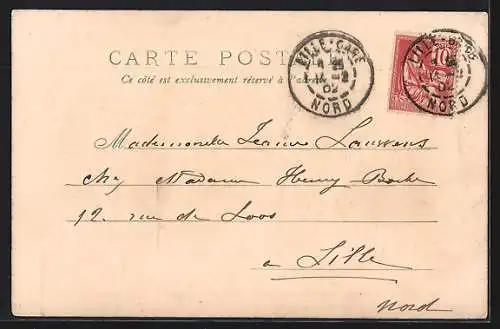 CARTE POSTALE
Ce côté est exclusivement réservé à l'adresse
LILLE-GARE
02
NORD
10
LILLE-GARE
02
NORD
Mademoiselle Jeanne Lauwens
chez Madame Henry-Boche
12. rue de Loos
a Lille
Nord